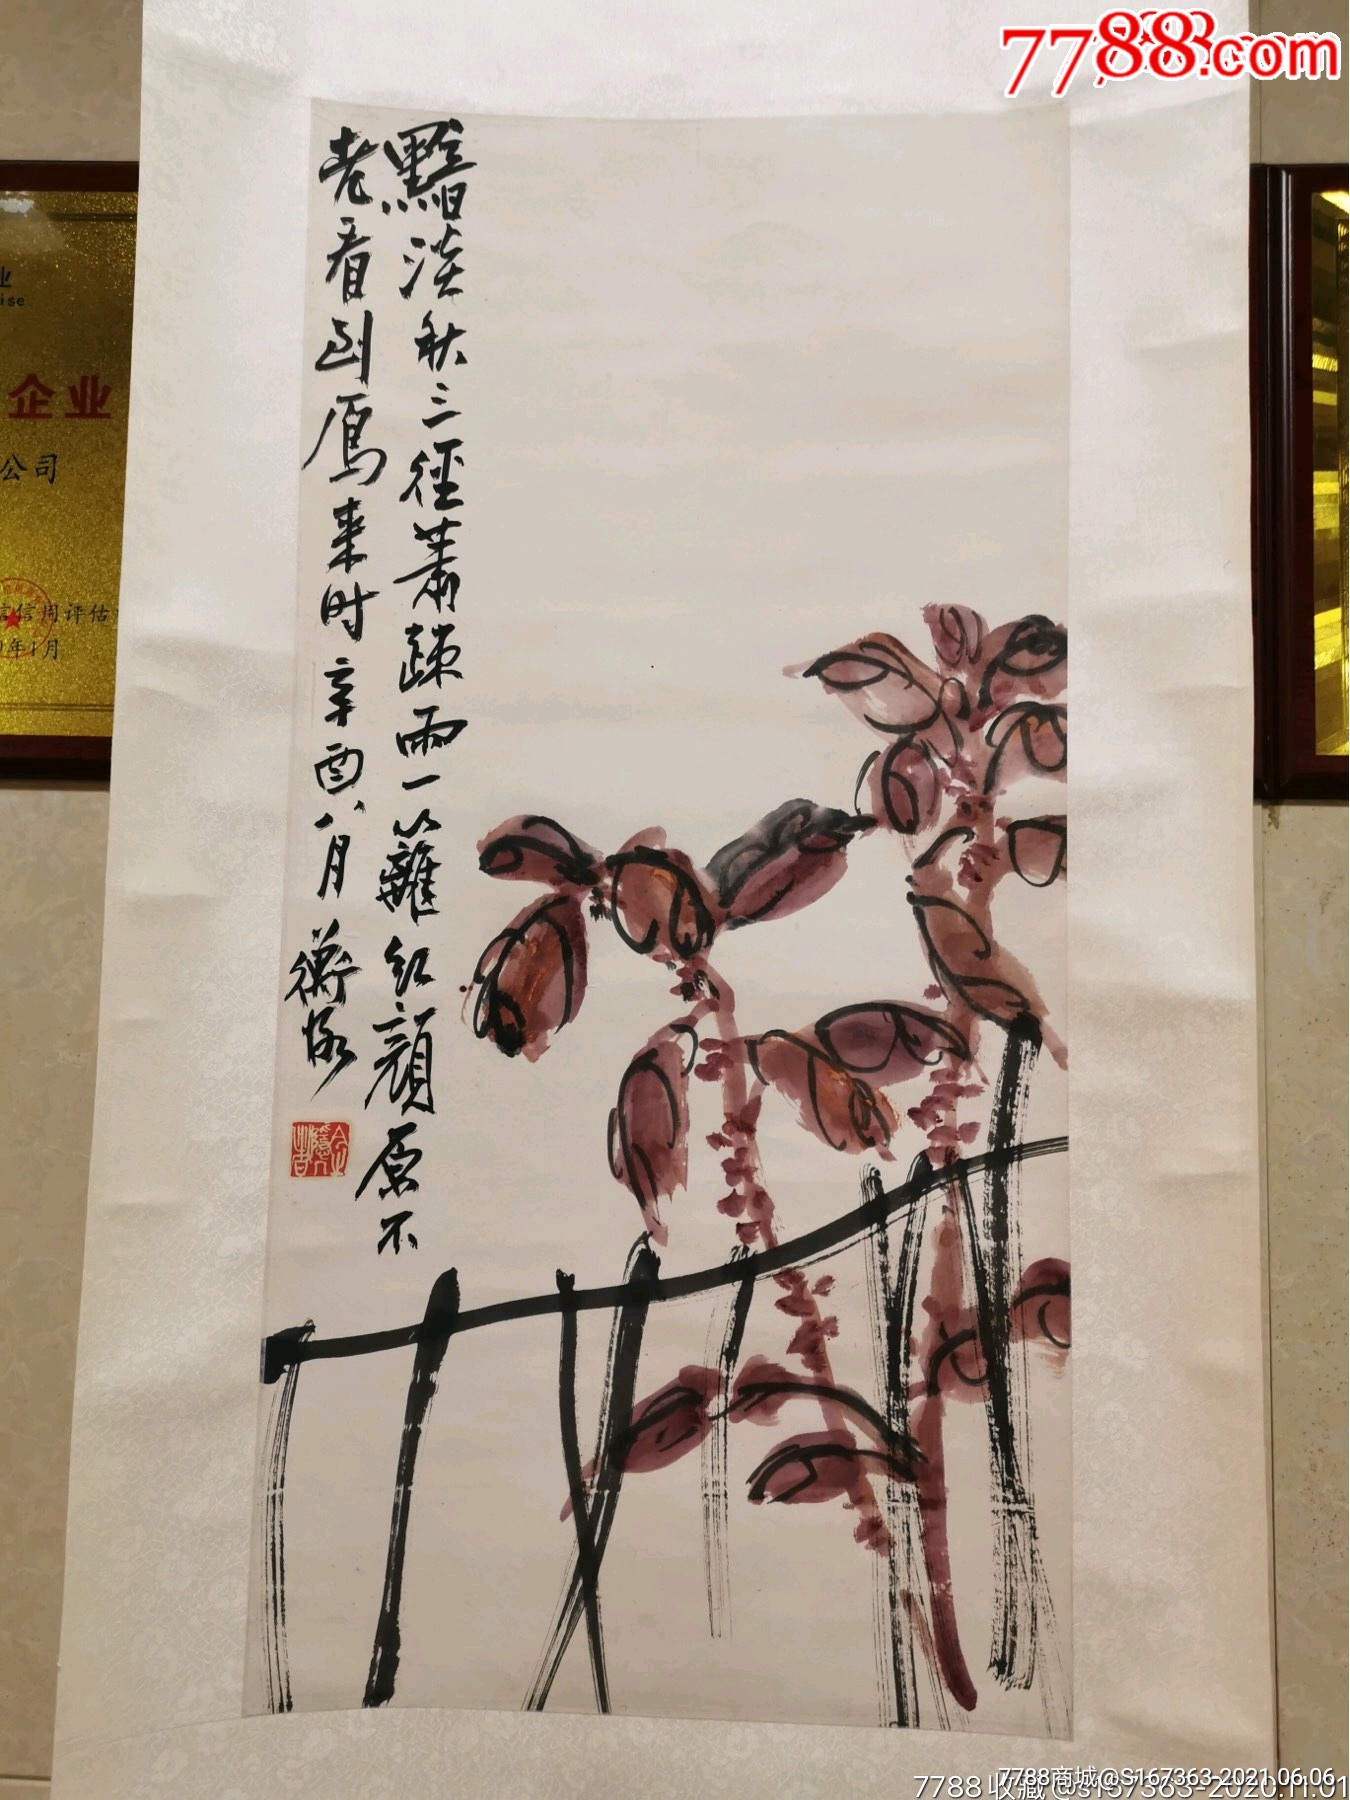 7788.com
黯淡秋三徑蕭疎雨一籬红顔原不
老看到鴈来时辛酉八月衡恪
企业
公司
ise
信用评估
年1月
7788商城@S167363-2021.06.06
7788收藏@s167363-2020.11.01